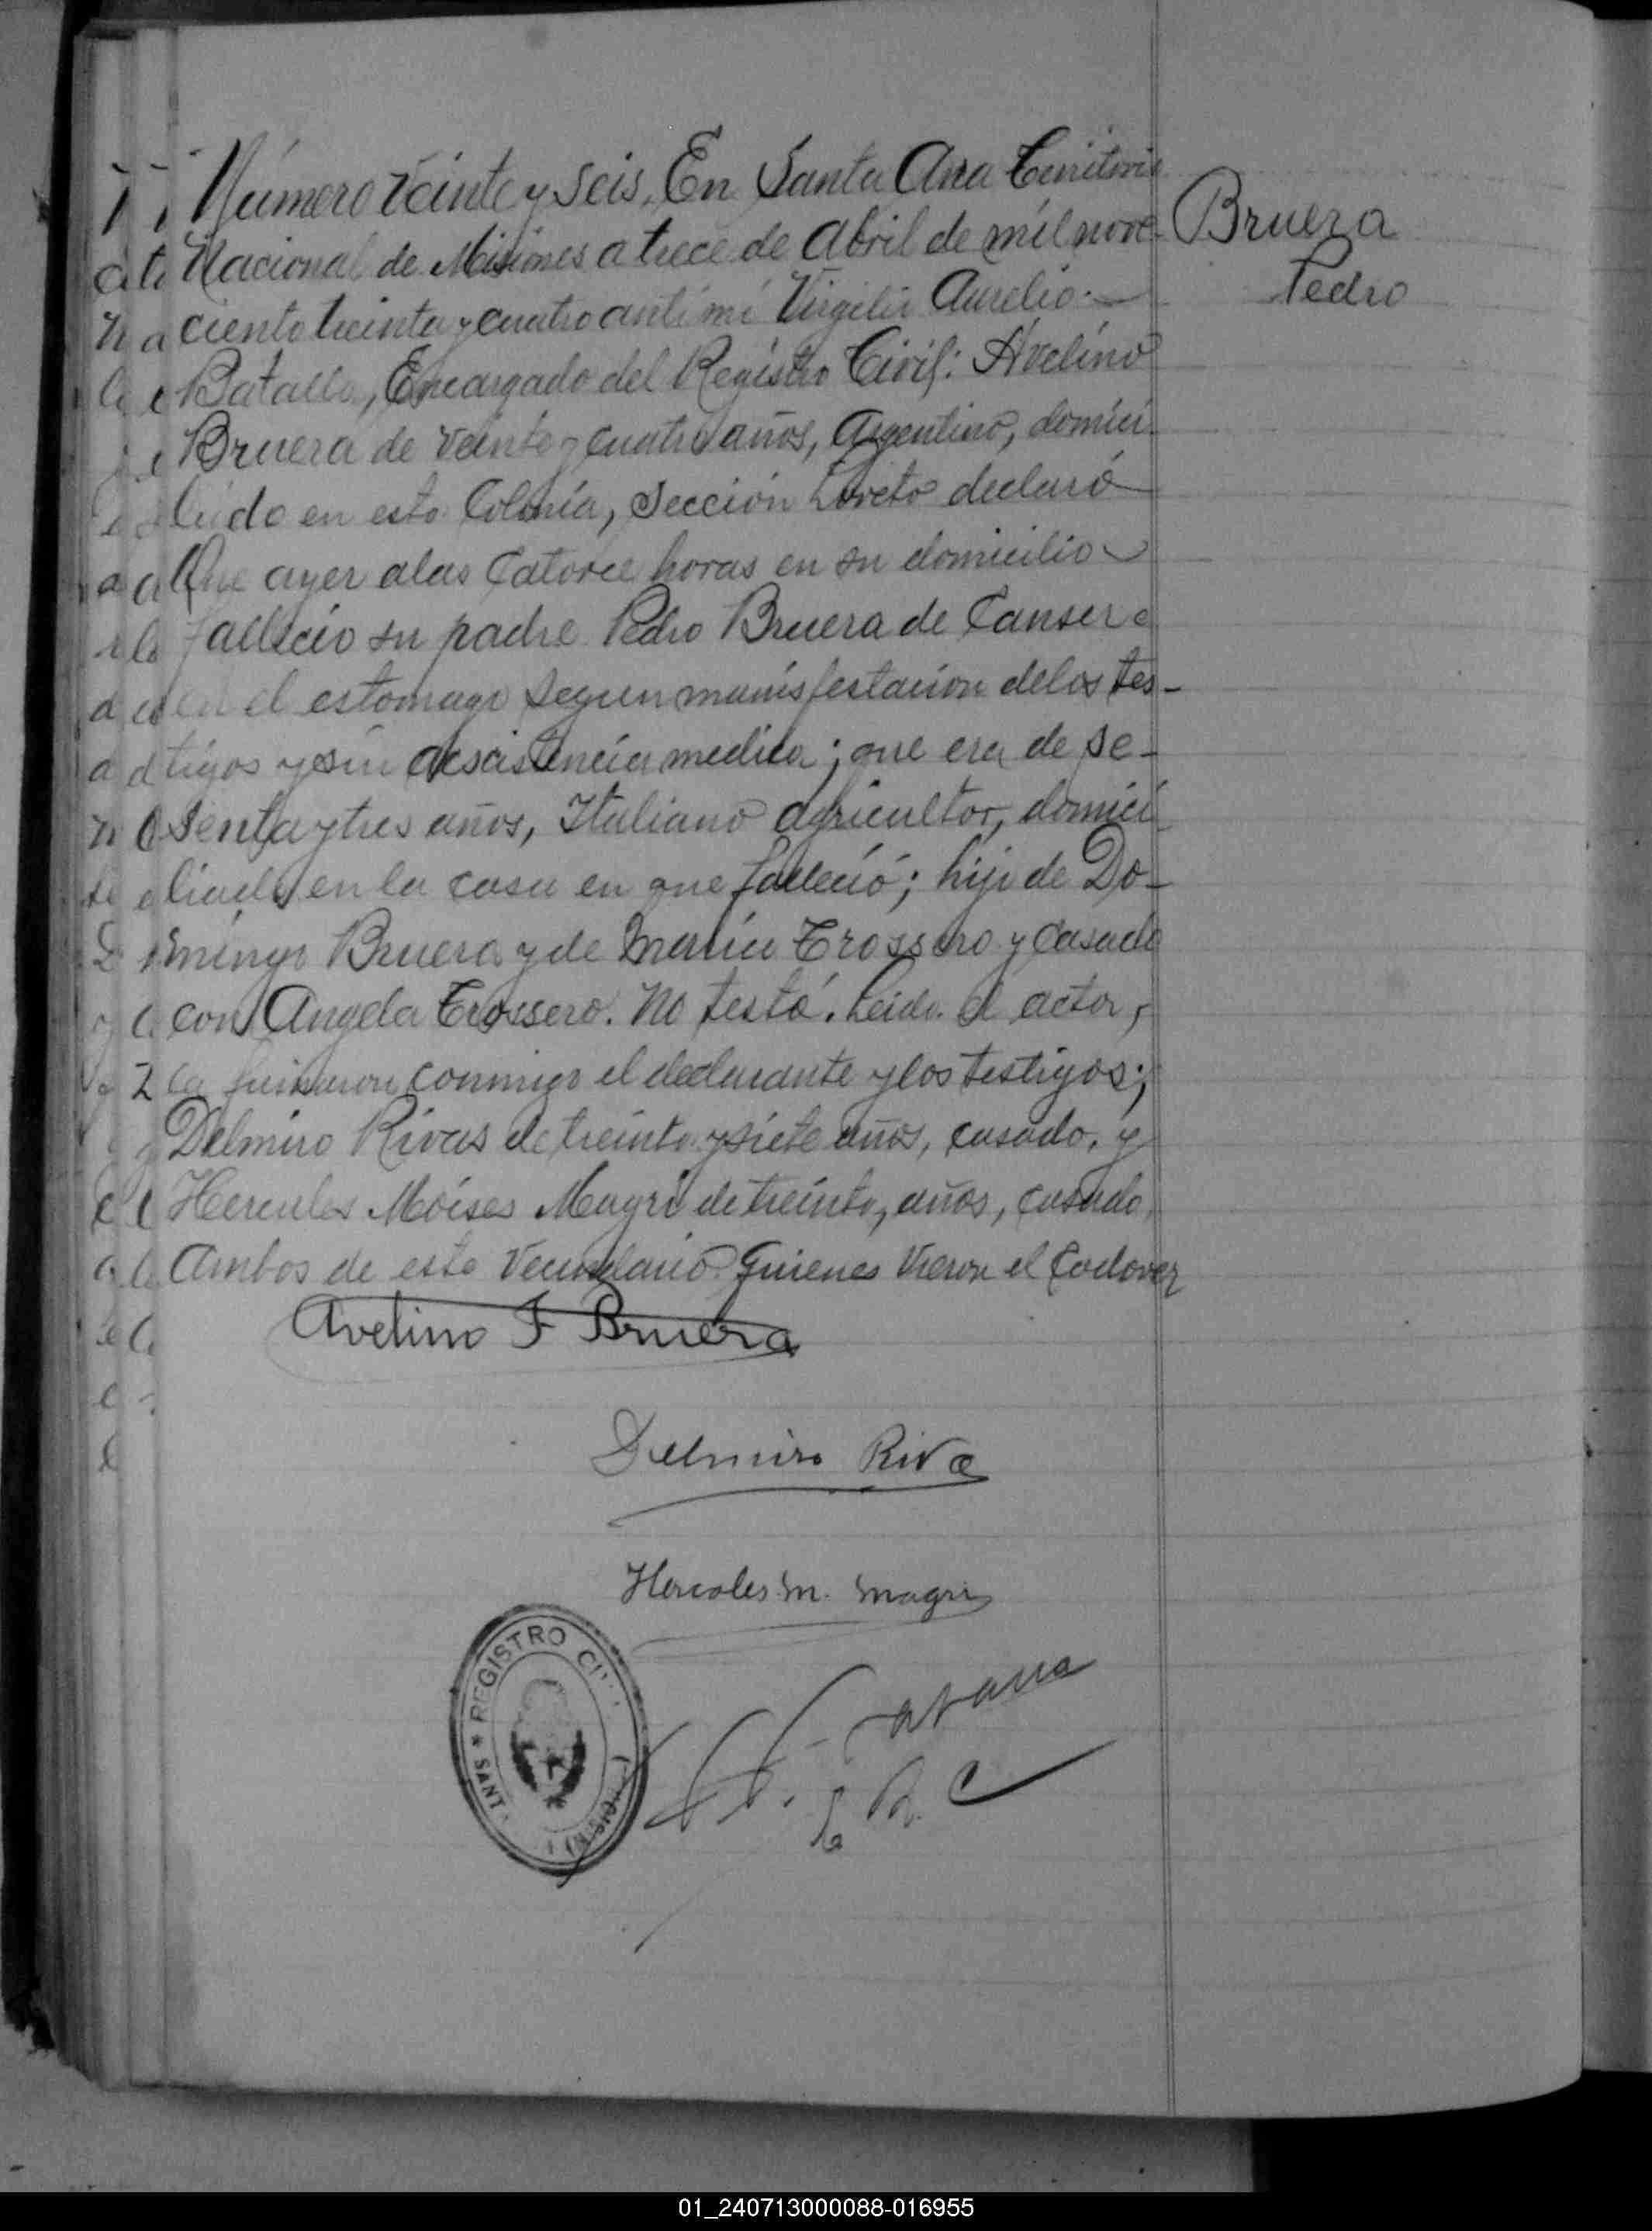 Número veinte y seis. En Santa Ana Territorio
Nacional de Misiones a trece de Abril de mil nove-
ciento treinta y cuatro anti mí Virgilio Aurelio
Batalla, Encargado del Registro Civil: Avelino
Bruera de veinte y cuatro años, Argentino, domici
liado en esta Colonia, Sección Loreto declaró
Que ayer alas Catorce horas en su domicilio
fallecio su padre Pedro Bruera de Canser
en el estomago segun manisfestacion delos tes-
tigos y sin acsistencia medica; que era de se-
senta y tres años, Italiano agricultor, domici
liado en la casa en que falleció; hijo de Do-
mingo Bruera y de María Trossero y Casado
con Angela Trossero. No testó. Leida el acta,
la firmaron conmigo el declarante y los testigos;
Delmiro Rivas de treinta y siete años, casado, y
Hercules Moises Magri de treinta, años, casado,
Ambos de este Vecindario quienes vieron el Codover
Bruera
Pedro
Avelino F Bruera
Delmiro Riva
Hercoles M. Magri
REGISTRO
SANT
E R C
01_240713000088-016955